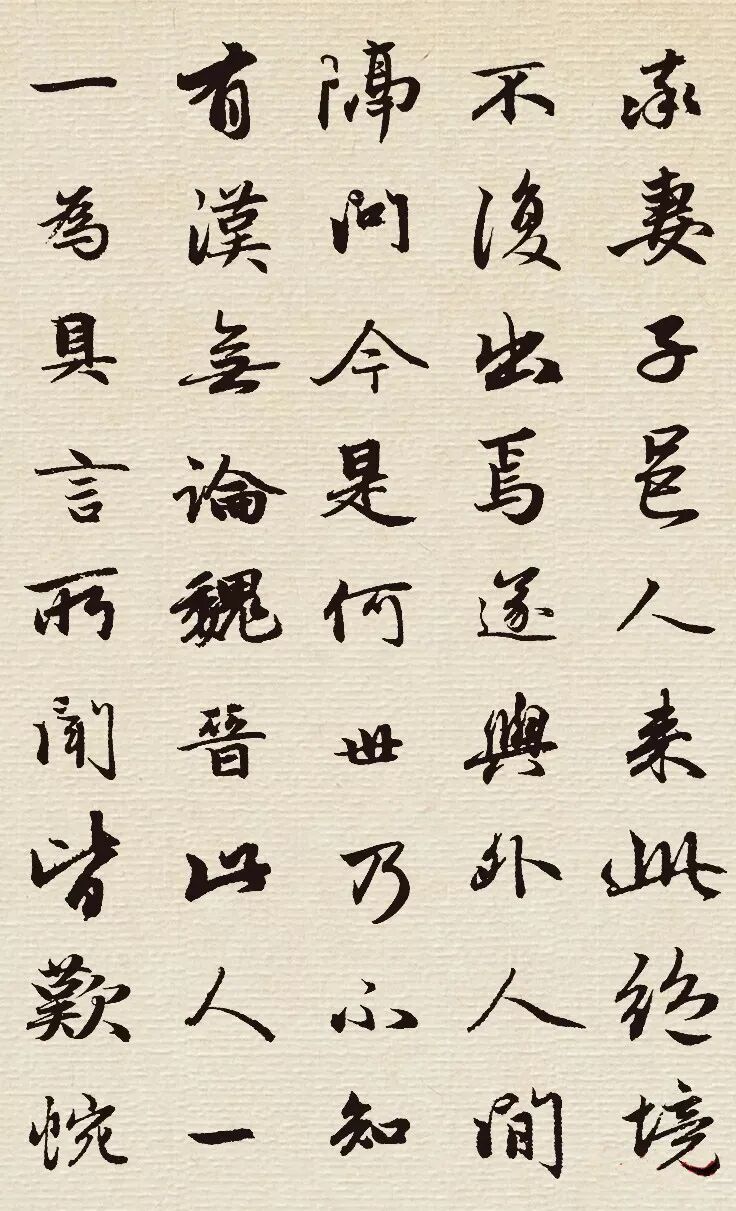 率妻子邑人来此絕境
不復出焉遂與外人間
隔問今是何世乃不知
有漢無論魏晉此人一
一為具言所聞皆歎惋